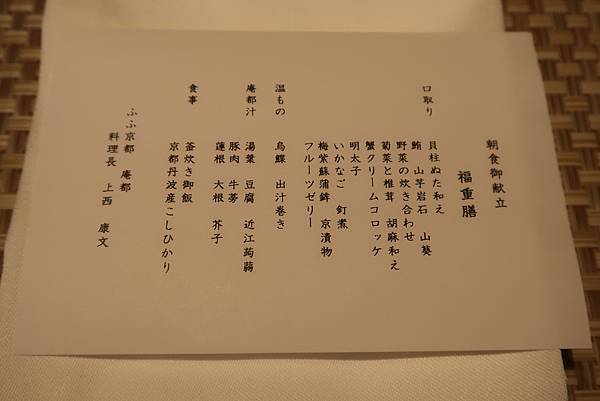 朝食御献立
福重膳
口取り 貝柱ぬた和え
鮪 山芋岩石 山葵
野菜の炊き合わせ
菊菜と椎茸 胡麻和え
蟹クリームコロッケ
明太子
いかなご 釘煮
梅紫蘇蒲鉾 京漬物
フルーツゼリー
温もの 烏鰈 出汁巻き
庵都汁 湯葉 豆腐 近江蒟蒻
豚肉 牛蒡
蓮根 大根 芥子
食事 釜炊き御飯
京都丹波産こしひかり
ふふ京都 庵都
料理長 上西 康文